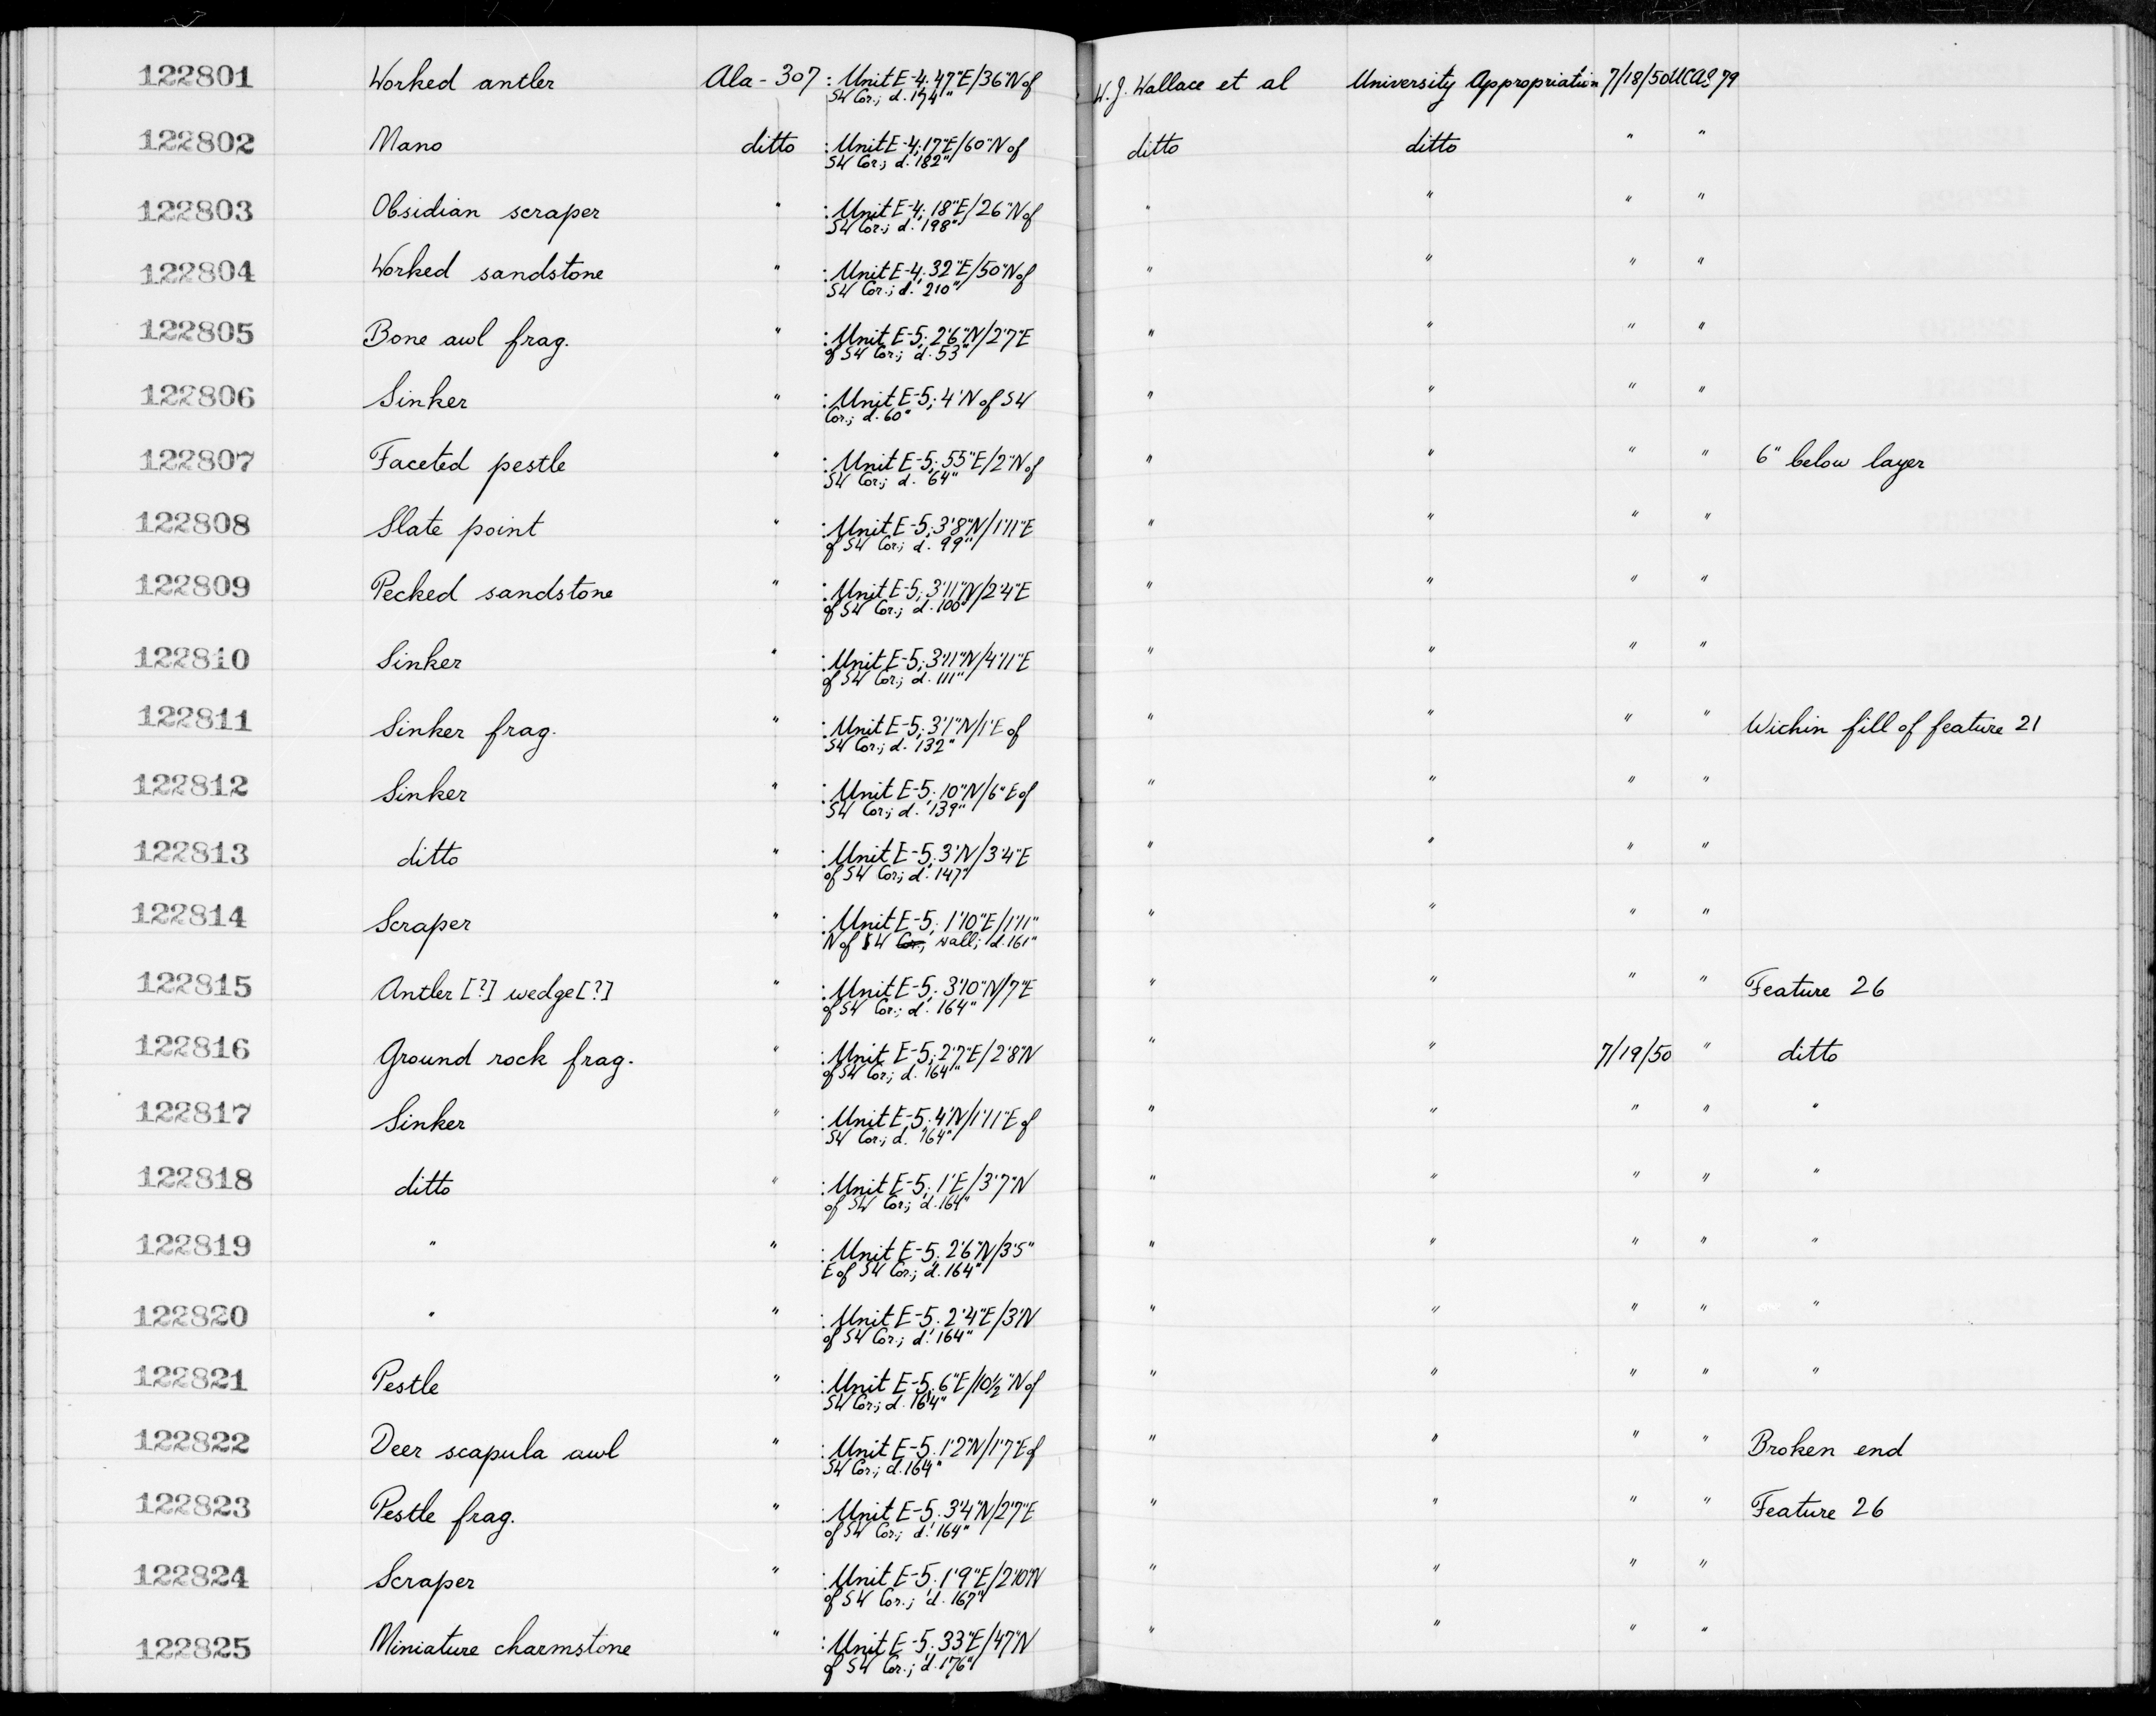 122801 Worked antler Ala-307 : Unit E-4; 47"E/36"N of W.J. Wallace et al University Appropriation 7/18/50 UCAS 79
SW Cor.; d. 174"
122802 Mano ditto : Unit E-4; 17"E/60"N of ditto ditto " "
SW Cor.; d. 182"
122803 Obsidian scraper " : Unit E-4; 18"E/26"N of " " " "
SW Cor.; d. 198"
122804 Worked sandstone " : Unit E-4; 32"E/50"N of " " " "
SW Cor.; d. 210"
122805 Bone awl frag. " : Unit E-5; 2'6"N/2'7"E " " " "
of SW Cor.; d. 53"
122806 Sinker " : Unit E-5; 4'N of SW " " " "
Cor.; d. 60"
122807 Faceted pestle " : Unit E-5; 55"E/2"N of " " " " 6" below layer
SW Cor.; d. 64"
122808 Slate point " : Unit E-5; 3'8"N/1'11"E " " " "
of SW Cor.; d. 99"
122809 Pecked sandstone " : Unit E-5; 3'11"N/2'4"E " " " "
of SW Cor.; d. 100"
122810 Sinker " : Unit E-5; 3'11"N/4'11"E " " " "
of SW Cor.; d. 111"
122811 Sinker frag. " : Unit E-5; 3'1"N/1'E of " " " " Wichin fill of feature 21
SW Cor.; d. 132"
122812 Sinker " : Unit E-5; 10"N/6"E of " " " "
SW Cor.; d. 139"
122813 ditto " : Unit E-5; 3'N/3'4"E " " " "
of SW Cor.; d. 147"
122814 Scraper " : Unit E-5; 1'10"E/1'11" " " " "
N of SW Cor.; wall; d. 161"
122815 Antler [?] wedge [?] " : Unit E-5; 3'10"N/7"E " " " " Feature 26
of SW Cor.; d. 164"
122816 Ground rock frag. " : Unit E-5; 2'7"E/2'8"N " " 7/19/50 " ditto
of SW Cor.; d. 164"
122817 Sinker " : Unit E-5; 4'N/1'11"E of " " " " "
SW Cor.; d. 164"
122818 ditto " : Unit E-5; 1'E/3'7"N " " " " "
of SW Cor.; d. 164"
122819 " " : Unit E-5; 2'6"N/3'5" " " " " "
E of SW Cor.; d. 164"
122820 " " : Unit E-5; 2'4"E/3'N " " " " "
of SW Cor.; d. 164"
122821 Pestle " : Unit E-5; 6"E/10½"N of " " " " "
SW Cor.; d. 164"
122822 Deer scapula awl " : Unit E-5; 1'2"N/1'7"E of " " " " Broken end
SW Cor.; d. 164"
122823 Pestle frag. " : Unit E-5; 3'4"N/2'7"E " " " " Feature 26
of SW Cor.; d. 164"
122824 Scraper " : Unit E-5; 1'9"E/2'10"N " " " "
of SW Cor.; d. 167"
122825 Miniature charmstone " : Unit E-5; 33"E/47"N " " " "
of SW Cor.; d. 176"